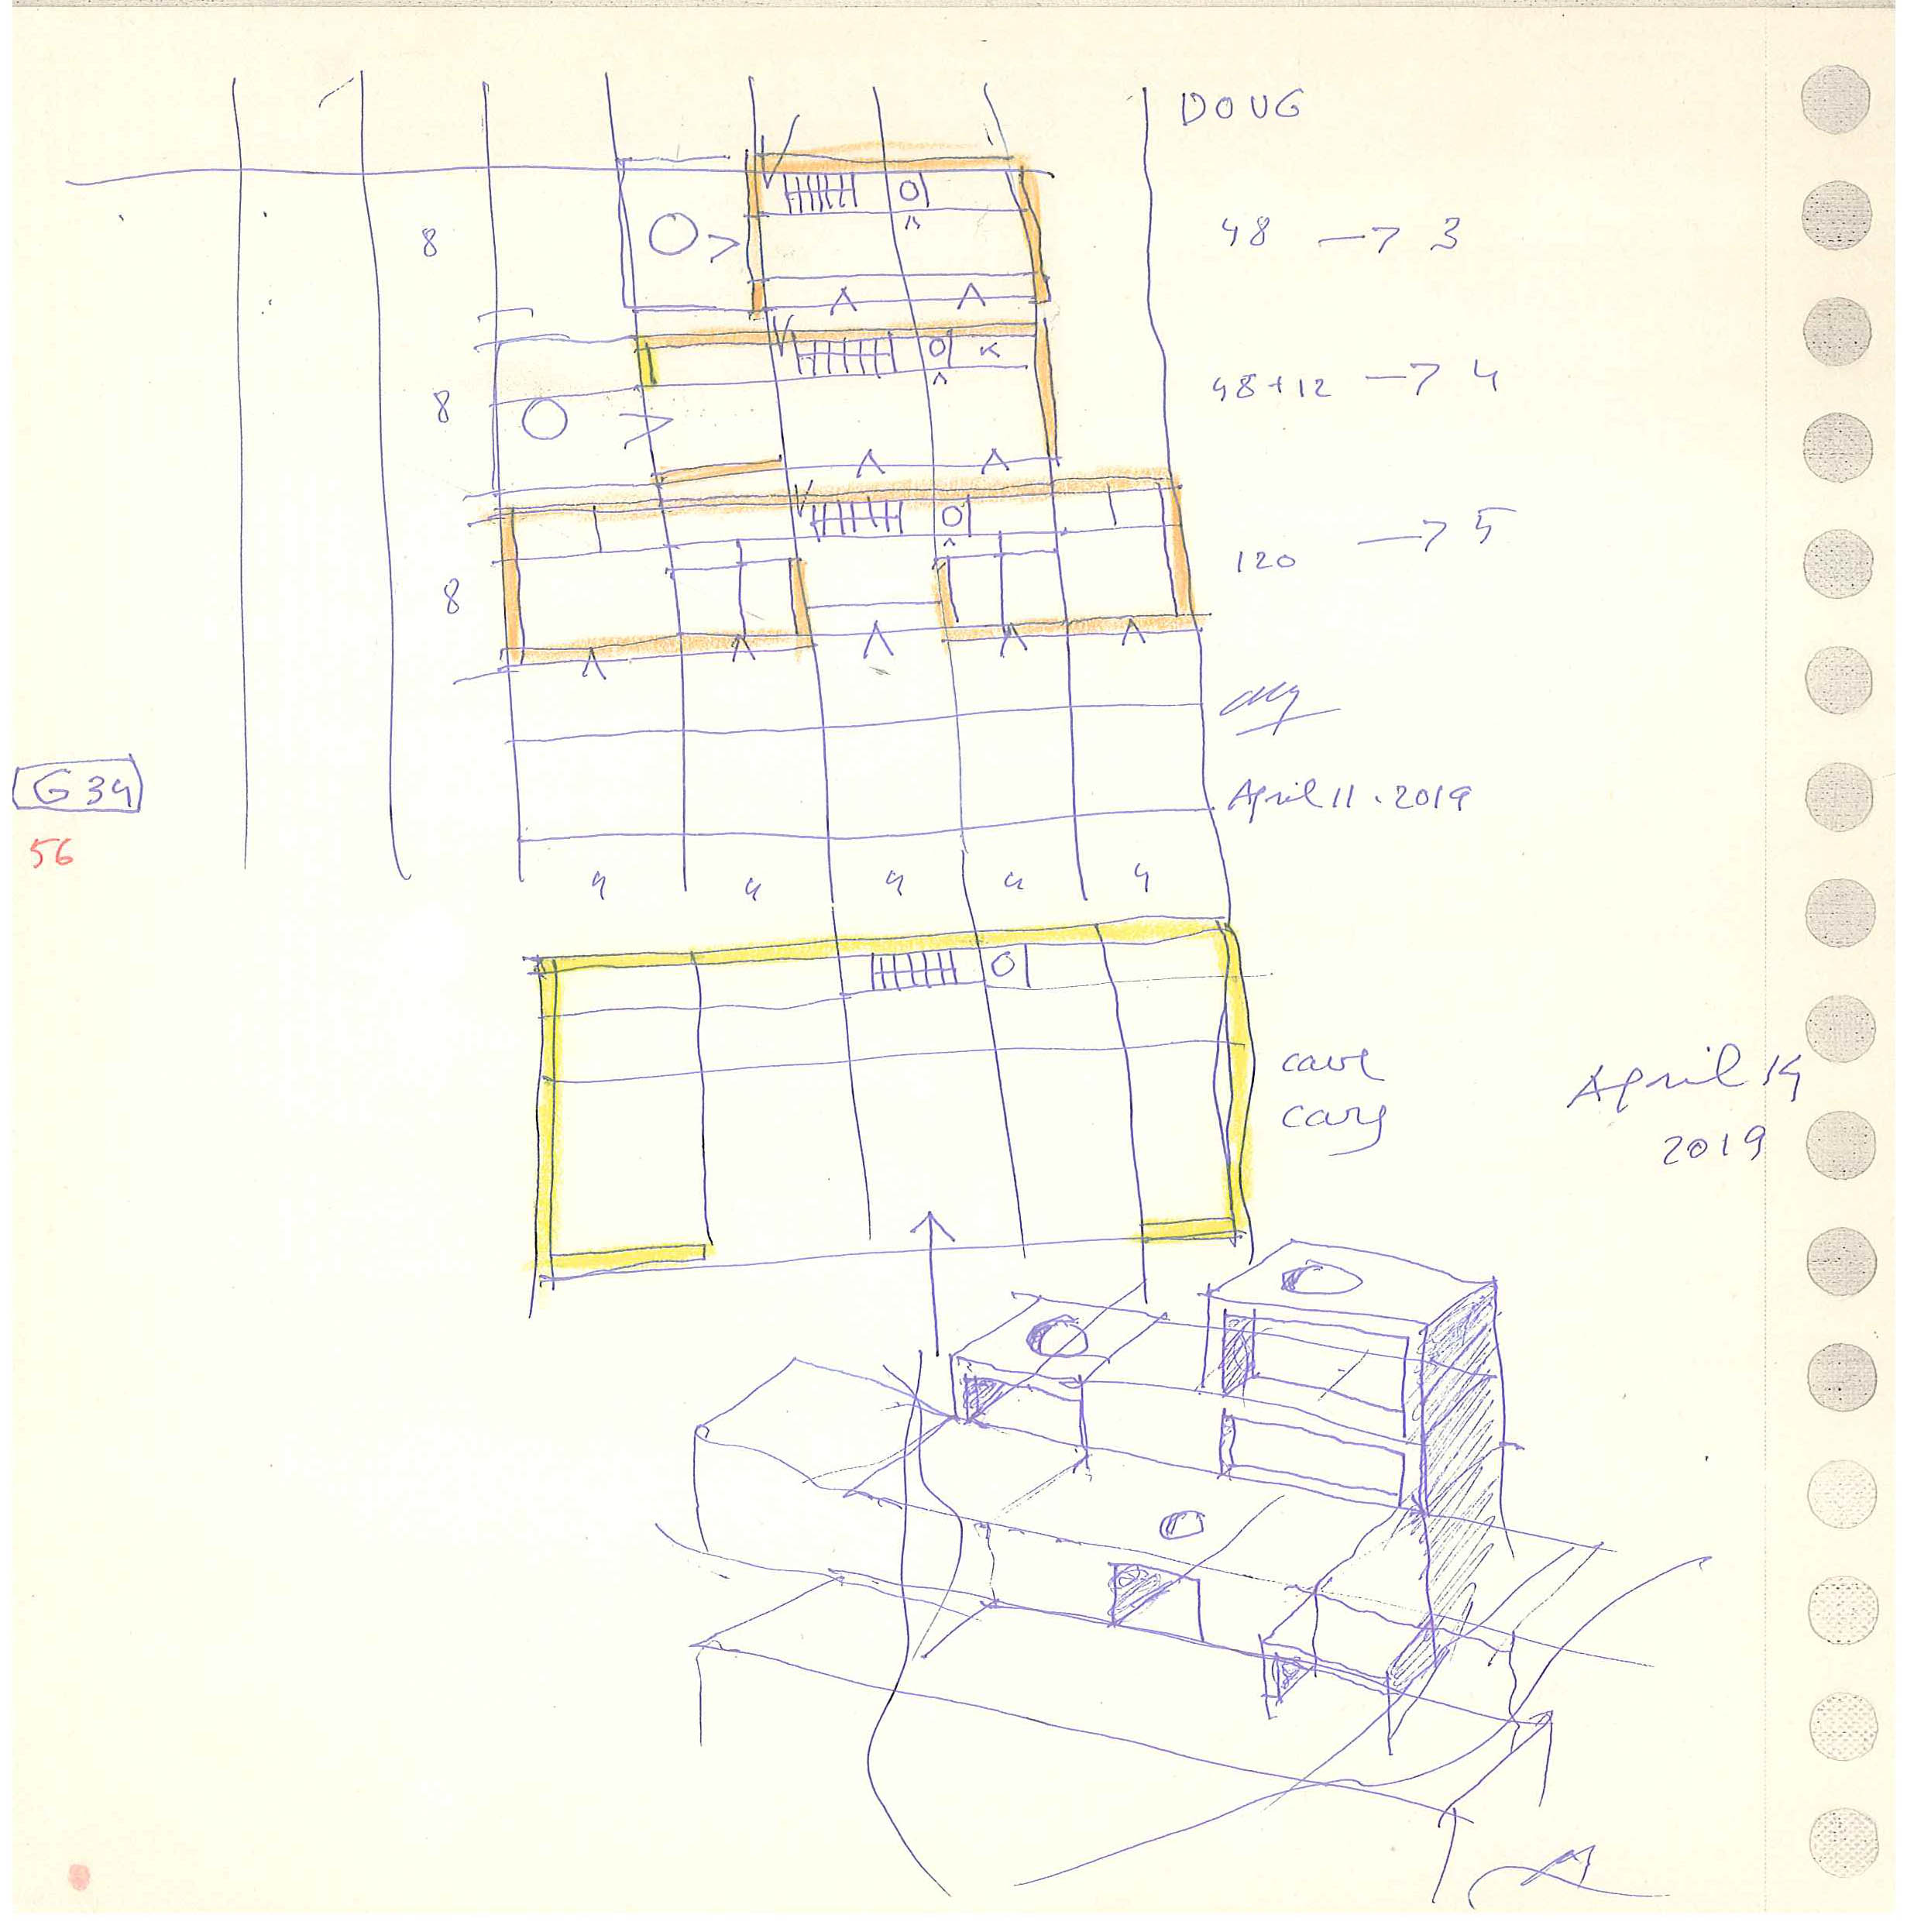 DOUG
8
48 → 3
K
8
48 + 12 → 4
8
120 → 5
G34
April 11 . 2019
56
4 4 4 4 4
cave
cars
April 14
2019